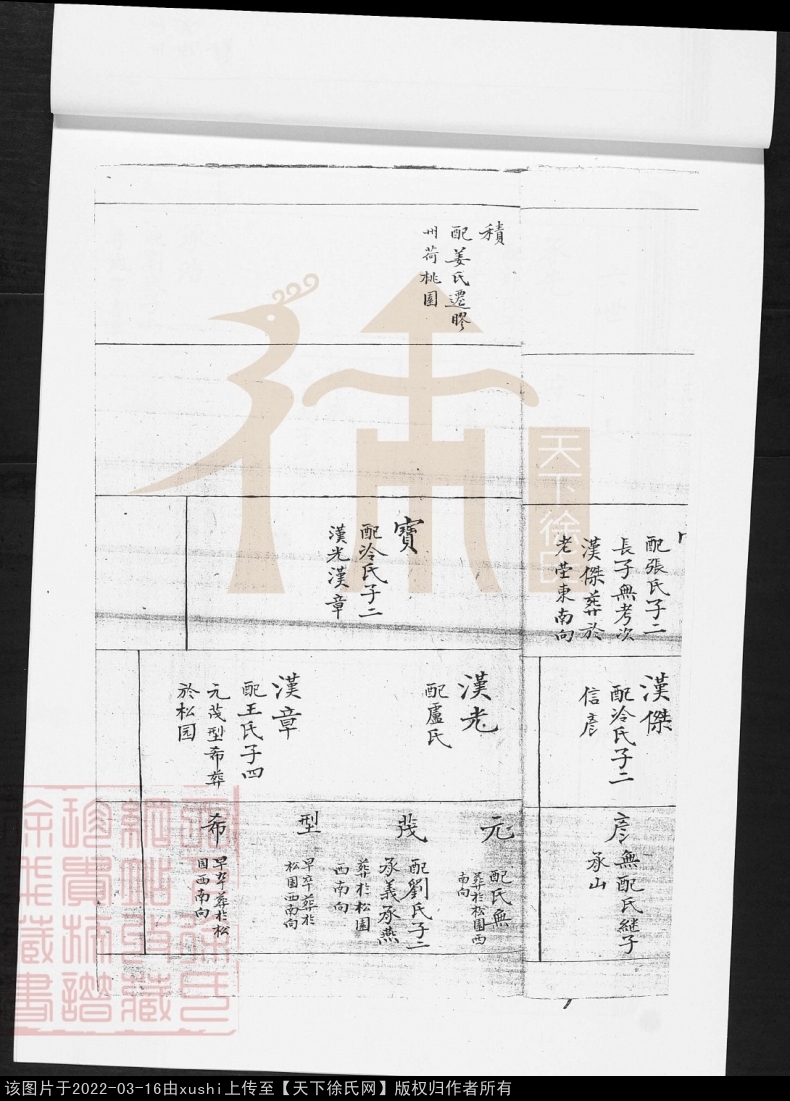 積
配姜氏遷膠
州荷桃園
配張氏子二
長子無考次
漢傑葬於
老塋東南向
寳
配冷氏子二
漢光漢章
漢傑
配冷氏子二
信彦
漢光
配盧氏
漢章
配王氏子四
元茂型希葬
於松园
彦
無配氏継子
承山
元
配氏無
葬於松園西
南向
茂
配劉氏子二
承義承燕
葬於松園
西南向
型
早卒葬於
松園西南向
希
早卒葬於松
園西南向
天下徐氏
徐氏
網站專藏
珍貴族譜
徐氏藏書
该图片于2022-03-16由xushi上传至【天下徐氏网】版权归作者所有